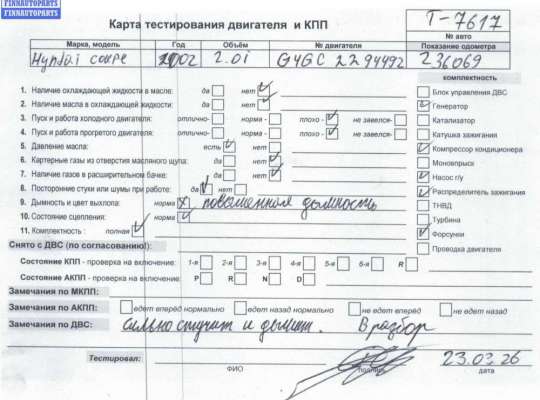 FINNAUTOPARTS
FINNAUTOPARTS
Карта тестирования двигателя и КПП
Т-7617
№ авто
Марка, модель Год Объём № двигателя Показание одометра
Hyndai coupe 2002 2.0i G4GC 2294492 236069
комплектность
1. Наличие охлаждающей жидкости в масле: да нет
2. Наличие масла в охлаждающей жидкости: да нет
3. Пуск и работа холодного двигателя: отлично- норма - плохо - не завелся-
4. Пуск и работа прогретого двигателя: отлично- норма - плохо - не завелся-
5. Давление масла: есть нет
6. Картерные газы из отверстия масляного щупа: да нет
7. Наличие газов в расширительном бачке: да нет
8. Посторонние стуки или шумы при работе: да нет
9. Дымность и цвет выхлопа: норма х повышенная дымность
10. Состояние сцепления: норма
11. Комплектность : полная
Блок управления ДВС
Генератор
Катализатор
Катушка зажигания
Компрессор кондиционера
Моновпрыск
Насос г/у
Распределитель зажигания
ТНВД
Турбина
Форсунки
Проводка двигателя
Снято с ДВС (по согласованию!):
Состояние КПП - проверка на включение: 1-я 2-я 3-я 4-я 5-я 6-я R
Состояние АКПП - проверка на включение: P R N D
Замечания по МКПП:
Замечания по АКПП: едет вперёд нормально едет назад нормально не едет вперёд не едет назад
Замечания по ДВС: сильно стучит и дымит. В разбор
Тестировал: 23.03.26
ФИО подпись дата